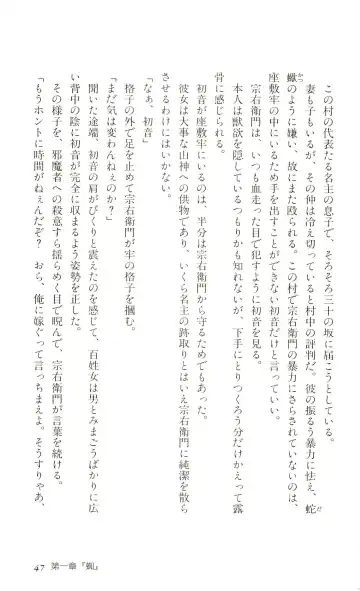 この村の代表たる名主の息子で、そろそろ三十の坂に届こうとしている。
妻も子もいるが、その仲は冷え切っていると村中の評判だ。彼の振るう暴力に怯え、蛇
蠍のように嫌い、故にまた殴られる。この村で宗右衛門の暴力にさらされていないのは、
座敷牢の中にいるため手を出すことができない初音だけと言っていい。
宗右衛門は、いつも血走った目で犯すように初音を見る。
本人は獣欲を隠しているつもりかも知れないが、下手にとりつくろう分だけかえって露
骨に感じられる。
初音が座敷牢にいるのは、半分は宗右衛門から守るためでもあった。
彼女は大事な山神への供物であり、いくら名主の跡取りとはいえ宗右衛門に純潔を散ら
させるわけにはいかない。
「なぁ、初音」
格子の外で足を止めて宗右衛門が牢の格子を掴む。
「まだ気は変わんねぇのか?」
聞いた途端、初音の肩がびくりと震えたのを感じて、百姓女は男とみまごうばかりに広
い背中の陰に初音が完全に収まるよう姿勢を正した。
その様子を、邪魔者への殺意すら揺らめく目で睨んで、宗右衛門が言葉を続ける。
「もうホントに時間がねぇんだぞ? おら、俺に嫁ぐって言っちまえよ。そうすりゃあ、
47 第一章『蜘』